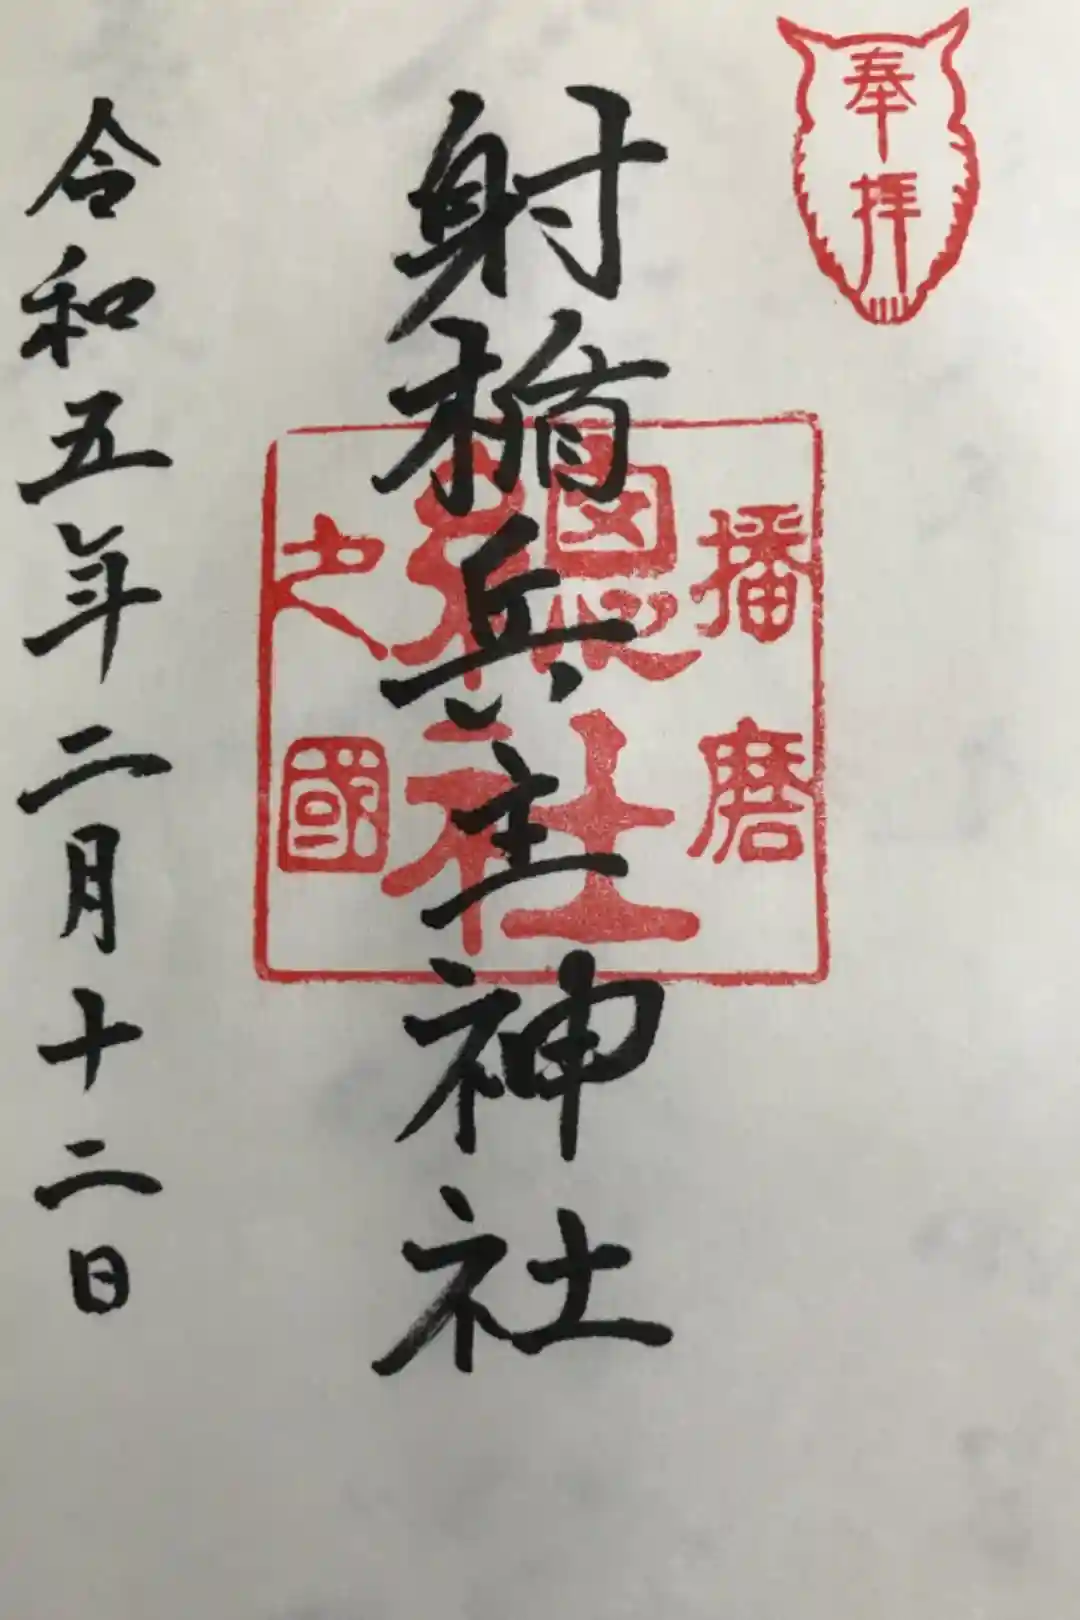 奉拝
射楯兵主神社
播磨
總社
之國
令和五年二月十二日